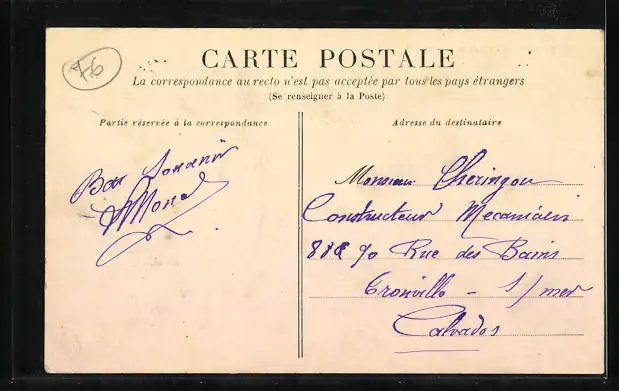 76
CARTE POSTALE
La correspondance au recto n'est pas acceptée par tous les pays étrangers
(Se renseigner à la Poste)
Partie réservée à la correspondance
Adresse du destinataire
Bon Souvenir
Monsieur Cheringou
Constructeur Mecanicien
88 & 90 Rue des Bains
Trouville - s/mer
Calvados